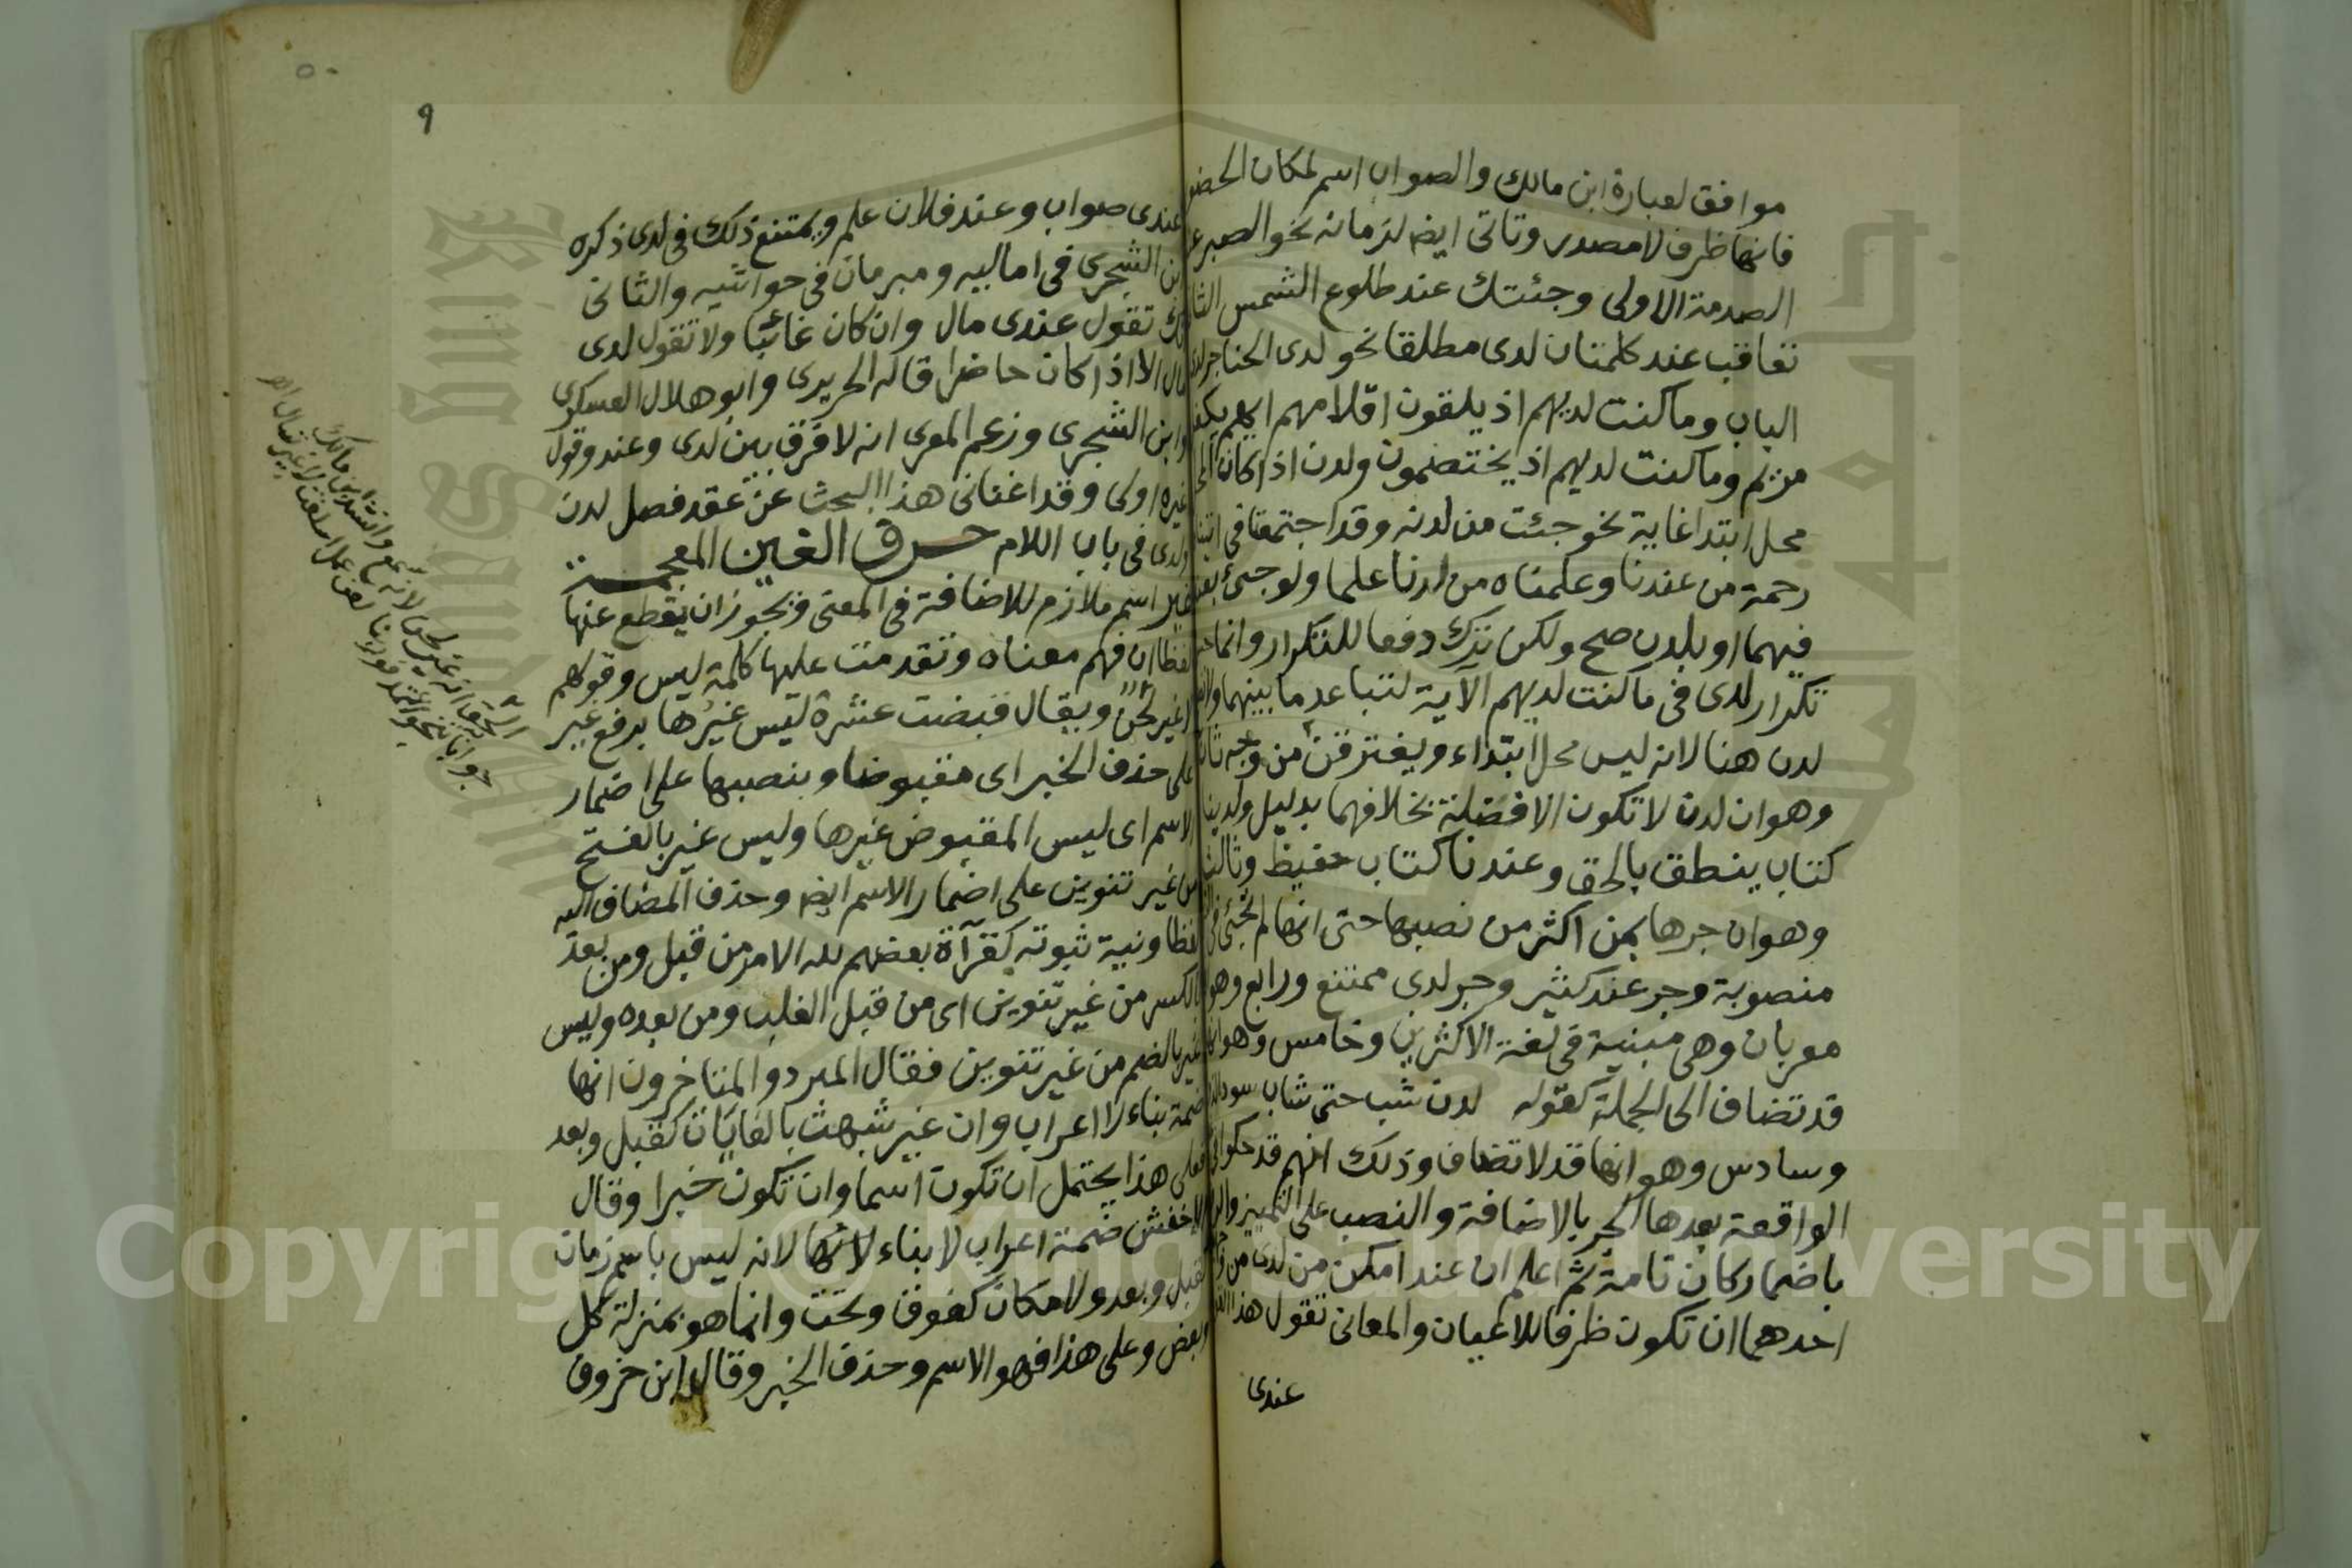 موافق لعبارة ابن مالك والصواب اسم لمكان الحضو
فانها ظرف لا مصدر وتاتى ايض لزمانه نحو الصبر ع
الصدمة الاولى وجئتك عند طلوع الشمس الثا
تعاقب عند كلمتان لدى مطلقا نحو لدى الحناجر لدى
الباب وما كنت لديهم اذ يلقون اقلامهم ايهم يكفل
مريم وما كنت لديهم اذ يختصمون ولدن اذا كان المح
محل ابتدا غاية نحو جئت من لدنه وقد اجتمعتا في اتينا
رحمة من عندنا وعلمناه من لدنا علما ولو جئ بعند
فيهما او بلدن صح ولكن ترك دفعا للتكرار وانما حسن
تكرار لدى في ما كنت لديهم الآية لتباعد ما بينهما ولا
لدن هنا لانه ليس محل ابتداء ويفترقن من وجه ثان
وهو ان لدن لا تكون الا فضلة بخلافهما بدليل ولدينا
كتاب ينطق بالحق وعندنا كتاب حفيظ وثالث
وهو ان جرها بمن اكثر من نصبها حتى انها لم تجئ في
منصوبة وجر عند كثير وجر لدى ممتنع ورابع وهو
معربان وهى مبنية في لغة الاكثرين وخامس وهو انها
قد تضاف الى الجملة كقوله لدن شب حتى شاب سود
وسادس وهو انها قد لا تضاف وذلك انهم قد حكوا في
الواقعة بعدها الجر بالاضافة والنصب على التمييز والر
باضمار كان تامة ثم اعلم ان عند امكن من لدى من
احدهما ان تكون ظرفا للاعيان والمعانى تقول هذا
عندى
٩
٥٠
عندى صواب وعند فلان علم ويمتنع ذلك في لدى ذكره
ابن الشجرى في اماليه ومبرمان في حواشيه والثانى
انك تقول عندى مال وان كان غائبا ولا تقول لدى
مال الا اذا كان حاضرا قاله الحريرى وابو هلال العسكرى
وابن الشجرى وزعم المعرى انه لا فرق بين لدى وعند وقول
غيره اولى وقد اغنانى هذا البحث عن عقد فصل لدن
ولدى في باب اللام حرف الغين المعجمة
غير اسم ملازم للاضافة في المعنى ويجوز ان يقطع عنها
لفظا ان فهم معناه وتقدمت عليها كلمة ليس وقولهم
لا غير لحن ويقال قبضت عشرة ليس غيرها برفع غير
على حذف الخبر اى مقبوضا وبنصبها على اضمار
الاسم اى ليس المقبوض غيرها وليس غير بالفتح
من غير تنوين على اضمار الاسم ايض وحذف المضاف اليه
لفظا ونية ثبوته كقرآة بعضهم لله الامر من قبل ومن بعد
بالكسر من غير تنوين اى من قبل الغلب ومن بعده وليس
غير بالضم من غير تنوين فقال المبرد والمتاخرون انها
ضمة بناء لا اعراب وان غير شبهت بالغايات كقبل وبعد
فعلى هذا يحتمل ان تكون اسما وان تكون خبرا وقال
الاخفش ضمة اعراب لا بناء لانها لانه ليس باسم زمان
كقبل وبعد ولا مكان كفوق وتحت وانما هو بمنزلة كل
وبعض وعلى هذا فهو الاسم وحذف الخبر وقال ابن خروف
الحق انه غير لحن لانه سمع وانشد ابن مالك
جوابا به تنجو اعتمد فوربنا لعن عمل اسلفت لا غير تسال